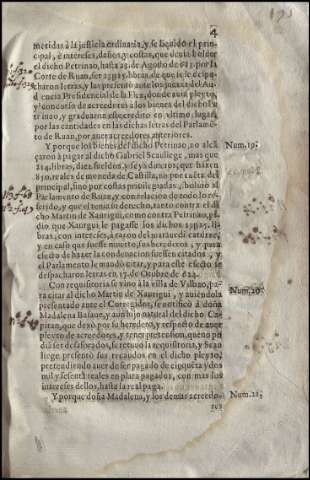 4
metidas à la justicia ordinaria, y se liquidò el principal, è intereses, daños, y costas, que deuia boluer
el dicho Petrinao, hasta 25. de Agosto de 613. por la
Corte de Ruan, ser libras, de que se le despacharon letras, y las presentò ante los juezes del Audiencia Presidencial de la Flex, donde auia pleyto,
y concurso de acreedores à los bienes del dicho Petrinao, y graduaron su credito en vltimo lugar,
por las cantidades en las dichas letras del Parlamento de Ruan, por auer acreedores anteriores.
Y porque los bienes del dicho Petrinao, no alcançaron à pagar al dicho Gabriel Scauliege, mas que
214. libras, diez sueldos, y seys dineros; que hazen
850. reales de moneda de Castilla, no por cuenta del
principal, sino por costas priuilegiadas, boluiò al
Parlamento de Ruan, y con relacion de todo lo referido, y que el tenia su derecho, tanto contra el dicho
Martin de Xaurigui, como contra Petrinao, pidio, que Xaurigui le pagasse los dichos libras, con intereses, à razon del
y en caso que fuesse muerto, sus herederos, y para
efecto de hazer la condenacion fuessen citados, y
el Parlamento le mandò citar, y para este efecto se
despacharon letras en 17. de Octubre de 624.
Con requisitoria se vino à la villa de Vilbao, para citar al dicho Martin de Xaurigui, y auiendola
presentado ante el Corregidor, se notificò à doña
Madalena Basaue, y à vn hijo natural del dicho Capitan, que dexò por su heredero, y respecto de auer
pleyto de acreedores, y tener pretension, que no podia ser desaforados, se retuuo la requisitoria, y Scauliege presentò sus recaudos en el dicho pleyto,
pretendiendo auer de ser pagado de cinquenta y dos
mil y sesenta reales en plata pagados, con mas los
intereses dellos, hasta la real paga.
Y porque doña Madalena, y los demàs acreedores
Num. 19.
Num. 20.
Num. 21.